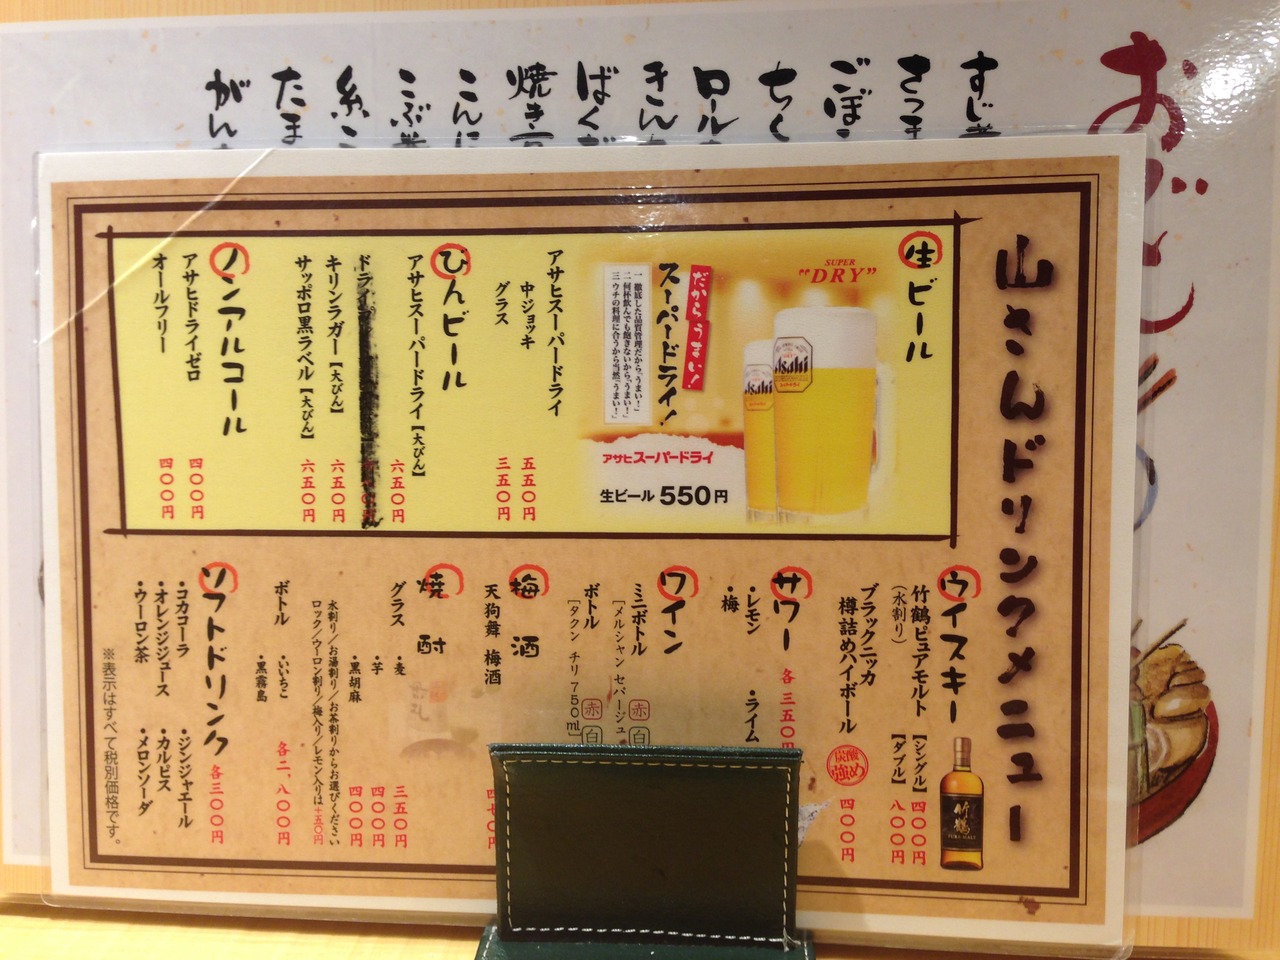 おでん
すじ
さつま
ごぼ
ちく
ロール
きん
ばくだ
焼き
こんに
こぶ
糸こ
たま
がん
山さんドリンクメニュー
生ビール
SUPER
"DRY"
Asahi
Asahi
だからうまい!
スーパードライ!
一 徹底した品質管理だから、「うまい!」
二 何杯飲んでも飽きないから、「うまい!」
三 ウチの料理に合うから当然「うまい!」
アサヒスーパードライ
生ビール 550円
アサヒスーパードライ
中ジョッキ 五五〇円
グラス 三五〇円
びんビール
アサヒスーパードライ【大びん】 六五〇円
ドライ
キリンラガー【大びん】 六五〇円
サッポロ黒ラベル【大びん】 六五〇円
ノンアルコール
アサヒドライゼロ 四〇〇円
オールフリー 四〇〇円
ウイスキー
竹鶴ピュアモルト 【シングル】 四〇〇円
(水割り) 【ダブル】 八〇〇円
ブラックニッカ
樽詰めハイボール 炭酸強め 四〇〇円
竹鶴
サワー 各三五〇円
・レモン ・ライム
・梅
ワイン
ミニボトル 赤 白
[メルシャン セパージュ
ボトル 赤 白
[タクン チリ 750ml]
梅酒
天狗舞 梅酒 四七〇円
焼酎
グラス ・麦 三五〇円
・芋 四〇〇円
・黒胡麻 四〇〇円
水割り/お湯割り/お茶割りからお選びください
ロック/ウーロン割り/梅入り/レモン入りは+五〇円
ボトル ・いいちこ 各二、八〇〇円
・黒霧島
ソフトドリンク 各三〇〇円
・コカコーラ ・ジンジャエール
・オレンジジュース ・カルピス
・ウーロン茶 ・メロンソーダ
※表示はすべて税別価格です。